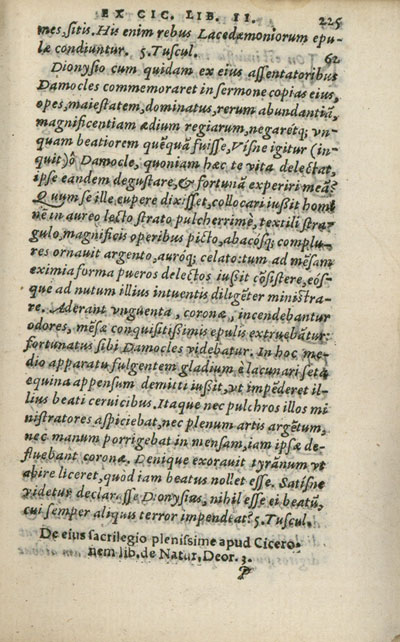 EX CIC. LIB. II. 225
mes, sitis. His enim rebus Lacedæmoniorum epu-
læ condiuntur. 5. Tuscul. 62
Dionysio cum quidam ex eius assentatoribus
Damocles commemoraret in sermone copias eius,
opes, maiestatem, dominatus, rerum abundantiã,
magnificentiam ædium regiarum, negaretq; vn-
quam beatiorem quẽquã fuisse, Visne igitur (in-
quit) ô Damocle, quoniam hæc te vita delectat,
ipse eandem degustare, & fortunã experiri meã?
Quum se ille cupere dixisset, collocari iussit homi
nẽ in aureo lecto strato pulcherrimè, textili stra-
gulo, magnificis operibus picto, abacosq; complu-
res ornauit argento, auroq; celato: tum ad mẽsam
eximia forma pueros delectos iussit cõsistere, eós-
que ad nutum illius intuentis diligẽter ministra-
re. Aderant vnguenta, coronæ, incendebantur
odores, mẽsæ conquisitissimis epulis extruebãtur:
fortunatus sibi Damocles videbatur. In hoc me-
dio apparatu fulgentem gladium è lacunari seta
equina appensum demitti iussit, vt impẽderet il-
lius beati ceruicibus. Itaque nec pulchros illos mi
nistratores aspiciebat, nec plenum artis argẽtum,
nec manum porrigebat in mensam, iam ipsæ de-
fluebant coronæ. Denique exorauit tyrãnum vt
abire liceret, quòd iam beatus nollet esse. Satisne
videtur declarasse Dionysius, nihil esse ei beatũ,
cui semper aliquis terror impendeat? 5. Tuscul.
De eius sacrilegio plenissime apud Cicero-
nem lib. de Natur. Deor. 3.
P